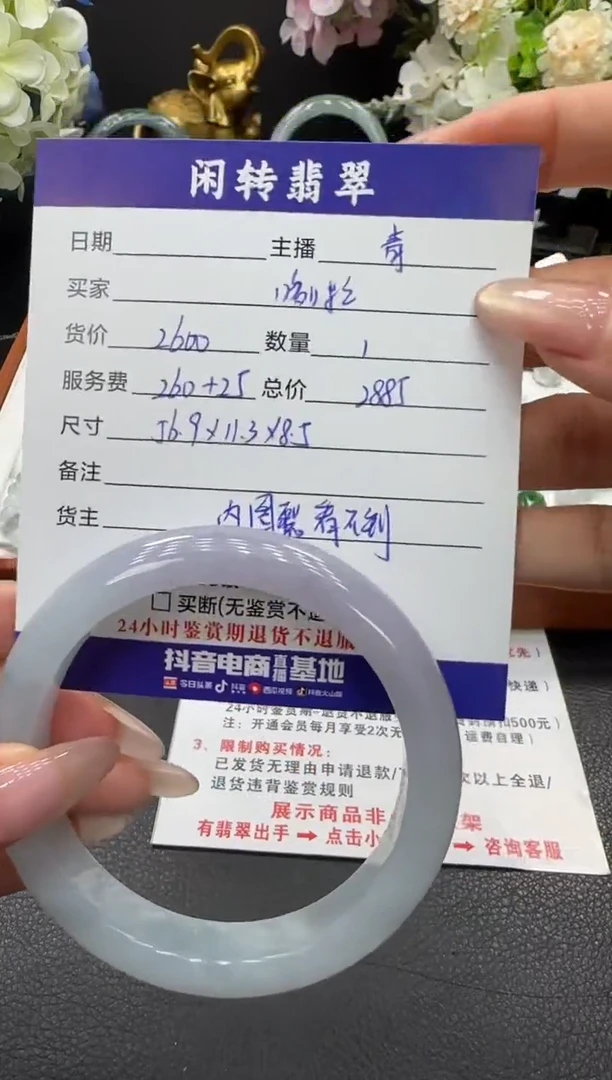 闲转翡翠
日期 主播 青
买家
货价 2600 数量 1
服务费 260+25 总价 2885
尺寸 56.9×11.3×8.5
备注
货主 内图裂看不到
买断(无鉴赏不退
24小时鉴赏期退货不退服
抖音电商直播基地
今日头条 抖音 西瓜视频 抖音火山版
先）
快递）
24小时鉴赏期-退货不退服 500元）
注：开通会员每月享受2次无 运费自理）
3、限制购买情况：
已发货无理由申请退款/ 次以上全退/
退货违背鉴赏规则
展示商品非 架
有翡翠出手→点击小 →咨询客服